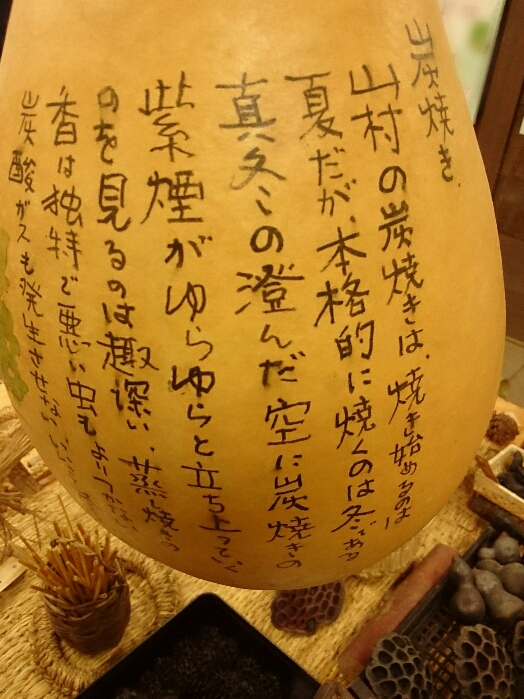 炭焼き、
山村の炭焼きは、焼き始めるのは
夏だが、本格的に焼くのは冬である
真冬の澄んだ空に炭焼きの
紫煙がゆらゆらと立ち上っている
のを見るのは趣深い、蒸し焼きの
香は独特で悪い虫もよりつかない
炭酸ガスも発生させない